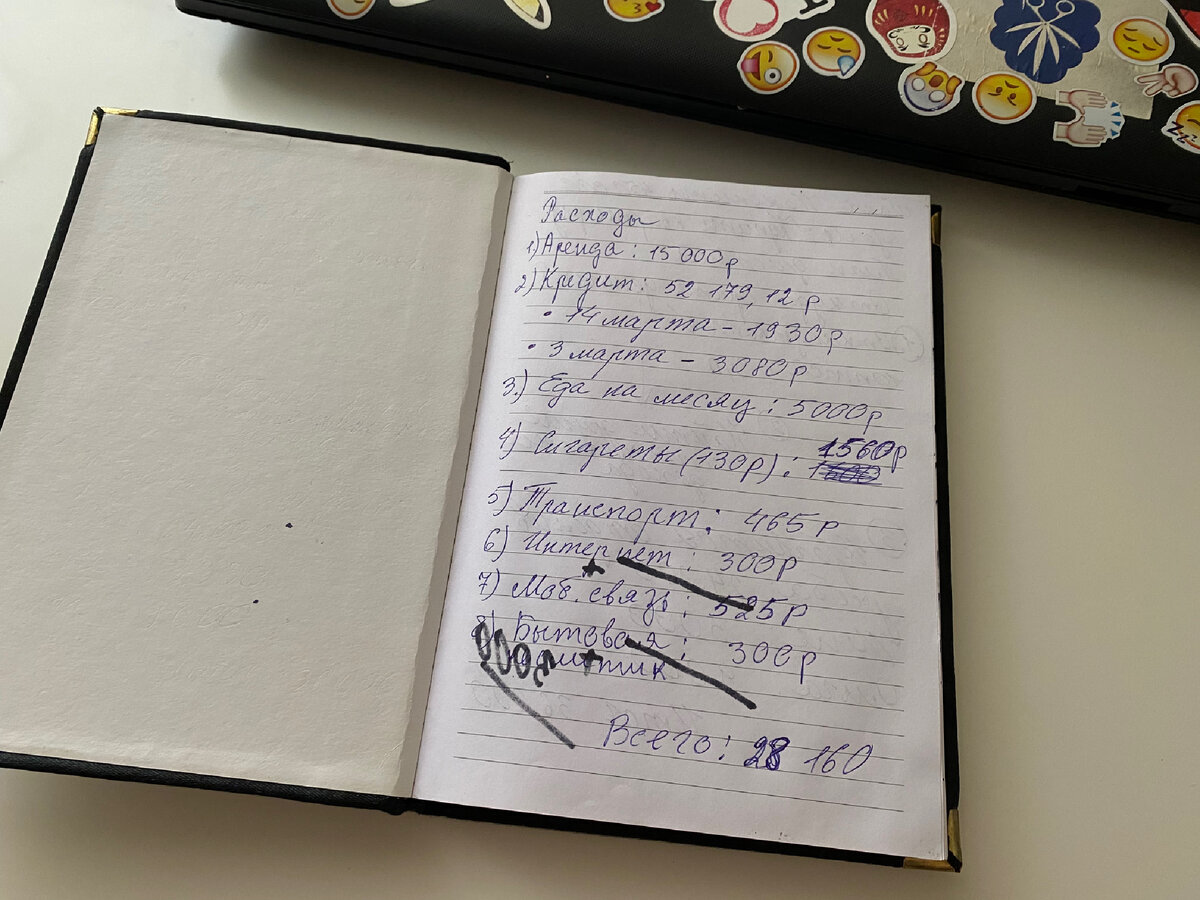 Расходы
1) Аренда: 15 000р
2) Кредит: 52 179,12 р
• 14 марта - 1930р
• 3 марта - 3080р
3.) Еда на месяц: 5000р
1560р
4) Сигареты (130р):
5) Транспорт: 465 р
6) Интернет: 300р
7) Моб. связь: 525р
8) Бытовая: 300р
Всего: 28 160